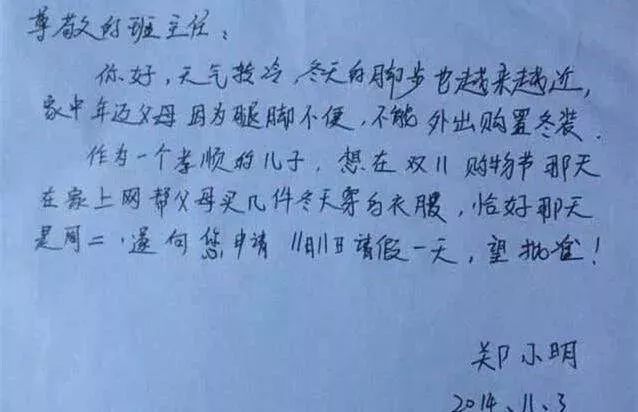 尊敬的班主任：
你好，天气转冷，冬天的脚步也越来越近，
家中年迈父母因为腿脚不便，不能外出购置冬装．
作为一个孝顺的儿子，想在双11购物节那天
在家上网帮父母买几件冬天穿的衣服，恰好那天
是周二．遂向您申请11月11日请假一天，望批准！
郑小明
2014.11.3